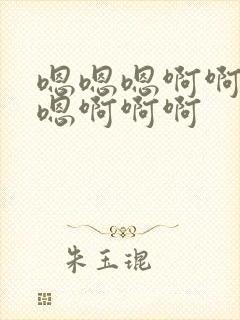 嗯嗯嗯啊啊
嗯啊啊啊
朱玉琨